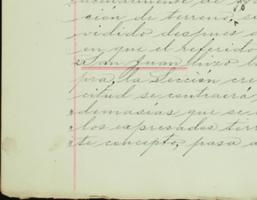 ción de terreno, se
vidido despues a
en que el referido
San Juan hizo la
pra, la Sección cre
citud se contraerá
demasías que se
los expresados terr
te concepto, pasa a